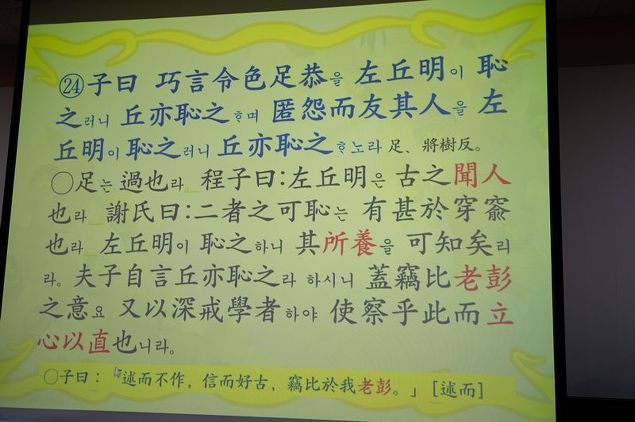 ㉔子曰 巧言令色足恭을 左丘明이 恥
之러니 丘亦恥之ᄒᆞ며 匿怨而友其人을 左
丘明이 恥之러니 丘亦恥之ᄒᆞ노라 足、將樹反。
○足는 過也라 程子曰:左丘明은 古之聞人
也라 謝氏曰:二者之可恥는 有甚於穿窬
也라 左丘明이 恥之하니 其所養을 可知矣리
라。夫子自言丘亦恥之라 하시니 蓋竊比老彭
之意요 又以深戒學者하야 使察乎此而立
心以直也니라。
○子曰:「述而不作，信而好古，竊比於我老彭。」[述而]